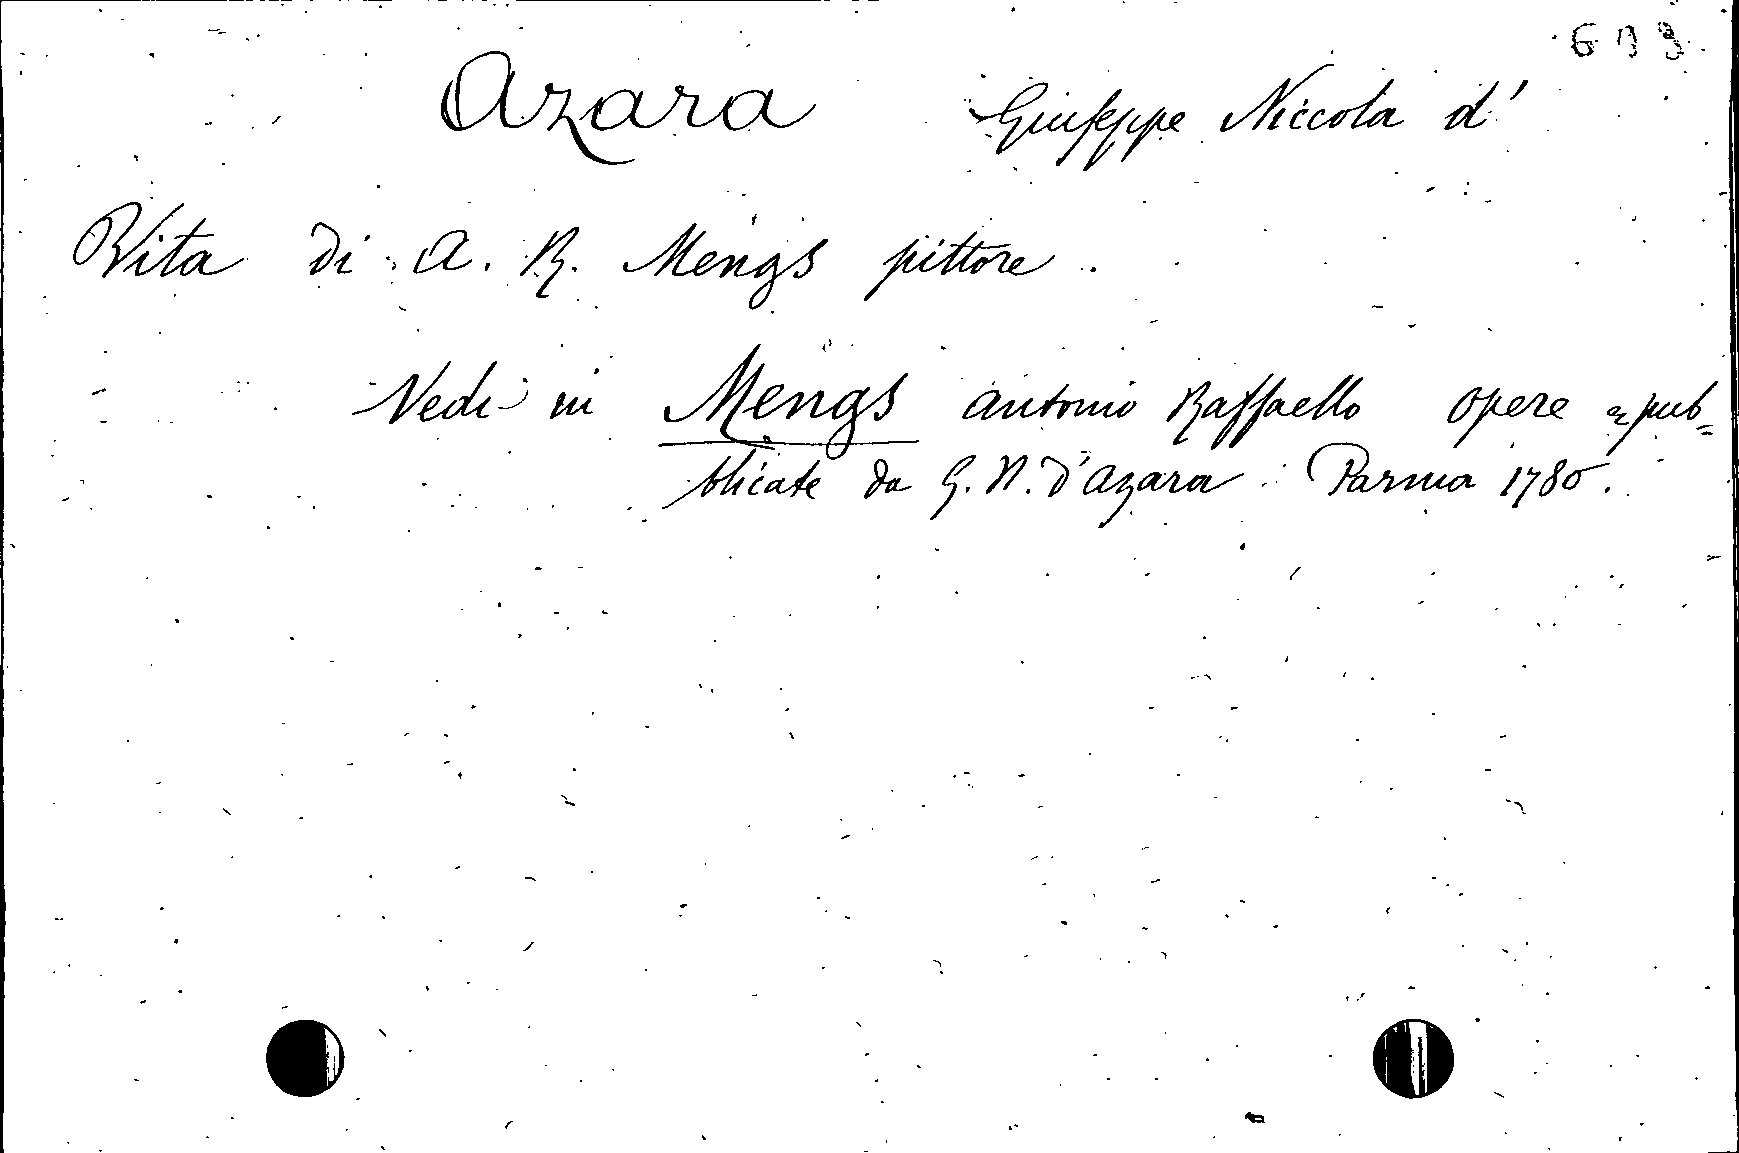 Azara Giuseppe Niccola d'
Vita di A. R. Mengs pittore.
Vedi in Mengs Antonio Raffaello opere pub=
blicate da G. N. d'Azara Parma 1780.